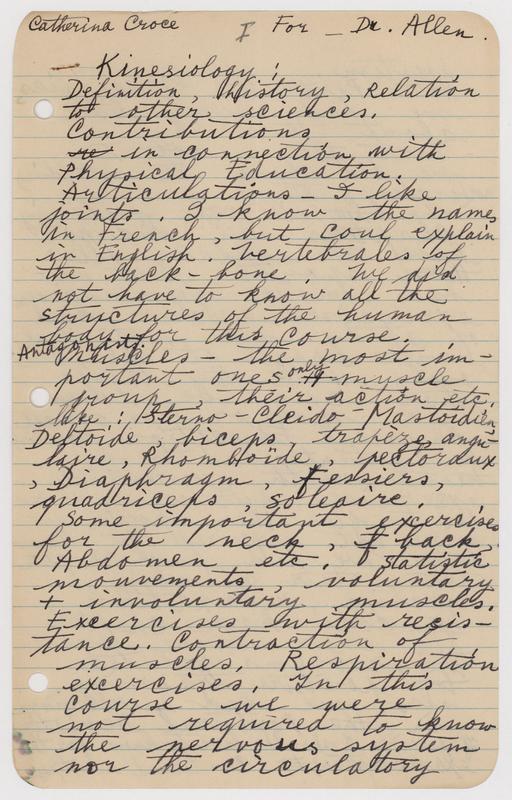 Catherina Croce I For - Dr. Allen.
Kinesiology :
Definition, history, relation
to other sciences.
Contributions
in connection with
Physical Education.
Articulations - I like
joints. I know the names
in French, but coul explain
in English. Vertebrales of
the back-bone. We did
not have to know all the
structures of the human
body for this course.
Antagonists
Muscles - the most im-
portant ones only muscle
group, their action etc.
like : Sterno-Cleido-Mastoïdien
Deltoïde, biceps, trapèze, angu-
laire, Rhomboïde, pectoraux
, Diaphragm, fessiers,
quadriceps, soleaire.
Some important excercises
for the neck, back,
Abdomen etc. Statistic
mouvements, voluntary
+ involuntary muscles.
Excercises with resis-
tance. Contraction of
muscles. Respiration
exercises. In this
course we were
not required to know
the nervous system
nor the circulatory